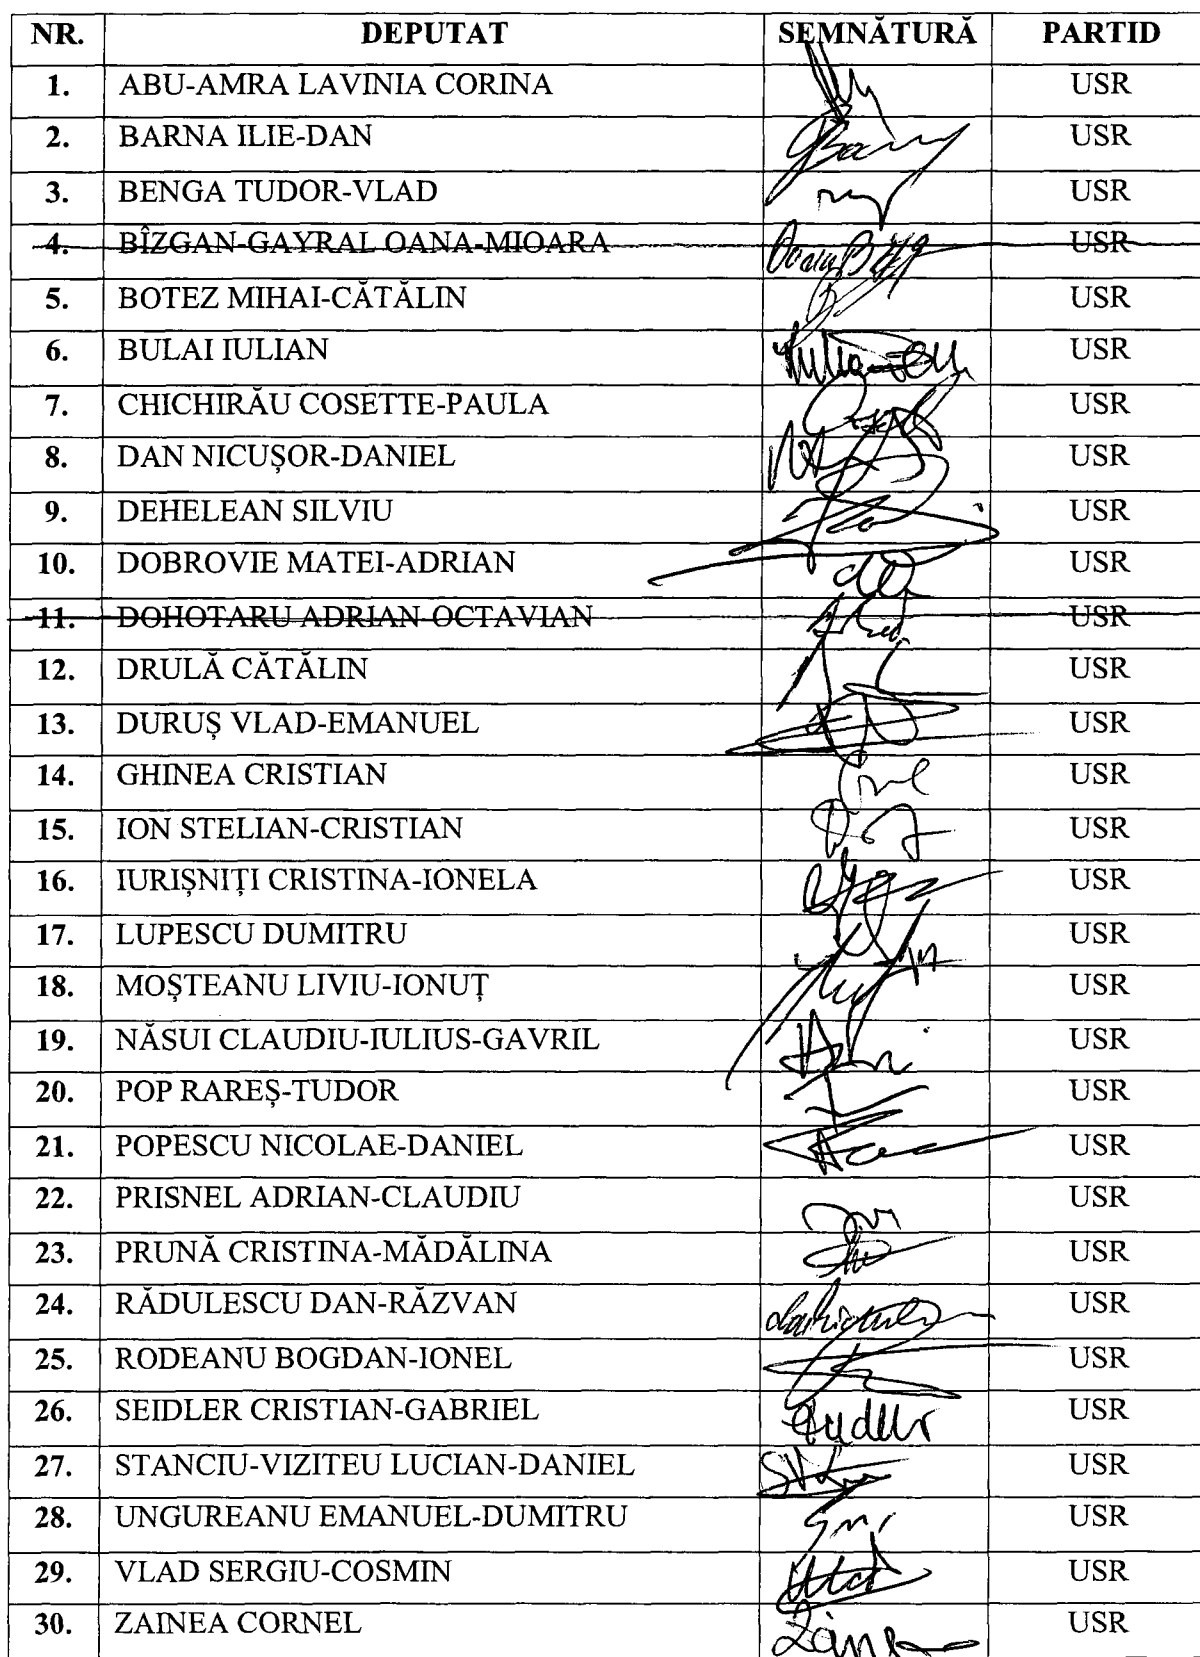 NR. DEPUTAT SEMNĂTURĂ PARTID
1. ABU-AMRA LAVINIA CORINA USR
2. BARNA ILIE-DAN USR
3. BENGA TUDOR-VLAD USR
4. BÎZGAN-GAYRAL OANA-MIOARA USR
5. BOTEZ MIHAI-CĂTĂLIN USR
6. BULAI IULIAN USR
7. CHICHIRĂU COSETTE-PAULA USR
8. DAN NICUȘOR-DANIEL USR
9. DEHELEAN SILVIU USR
10. DOBROVIE MATEI-ADRIAN USR
11. DOHOTARU ADRIAN-OCTAVIAN USR
12. DRULĂ CĂTĂLIN USR
13. DURUȘ VLAD-EMANUEL USR
14. GHINEA CRISTIAN USR
15. ION STELIAN-CRISTIAN USR
16. IURIȘNIȚI CRISTINA-IONELA USR
17. LUPESCU DUMITRU USR
18. MOȘTEANU LIVIU-IONUȚ USR
19. NĂSUI CLAUDIU-IULIUS-GAVRIL USR
20. POP RAREȘ-TUDOR USR
21. POPESCU NICOLAE-DANIEL USR
22. PRISNEL ADRIAN-CLAUDIU USR
23. PRUNĂ CRISTINA-MĂDĂLINA USR
24. RĂDULESCU DAN-RĂZVAN USR
25. RODEANU BOGDAN-IONEL USR
26. SEIDLER CRISTIAN-GABRIEL USR
27. STANCIU-VIZITEU LUCIAN-DANIEL USR
28. UNGUREANU EMANUEL-DUMITRU USR
29. VLAD SERGIU-COSMIN USR
30. ZAINEA CORNEL USR